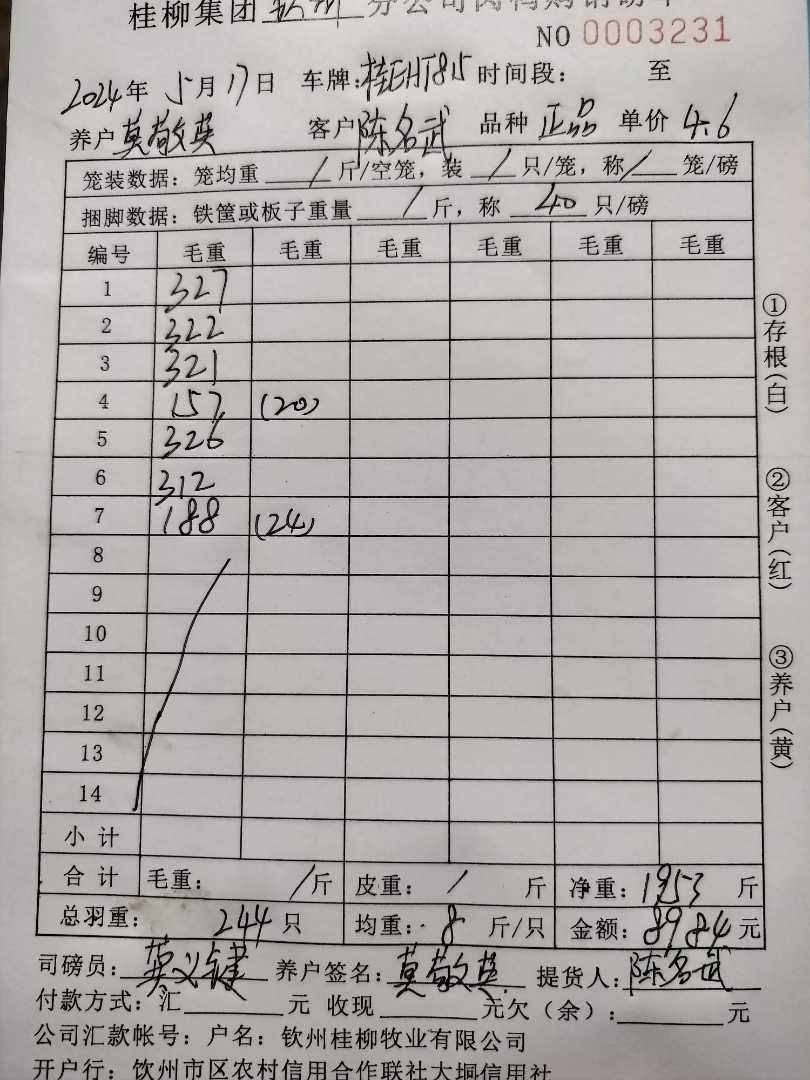 桂柳集团 钦州 分公司肉鸭购销磅单
NO 0003231
2024年 5月17日 车牌:桂EHT815 时间段: 至
养户 莫敬英 客户 陈名武 品种 正品 单价 4.6
笼装数据: 笼均重 / 斤/空笼, 装 / 只/笼, 称 / 笼/磅
捆脚数据: 铁筐或板子重量 / 斤, 称 40 只/磅
编号 毛重 毛重 毛重 毛重 毛重 毛重
1 327
2 322
3 321
4 157 (20)
5 326
6 312
7 188 (24)
8
9
10
11
12
13
14
小计
合计 毛重: / 斤 皮重: / 斤 净重: 1953 斤
总羽重: 244 只 均重: 8 斤/只 金额: 8984 元
司磅员: 莫义健 养户签名: 莫敬英 提货人: 陈名武
付款方式: 汇 元 收现 元欠(余): 元
公司汇款帐号: 户名: 钦州桂柳牧业有限公司
开户行: 钦州市区农村信用合作联社大垌信用社
①存根(白)
②客户(红)
③养户(黄)